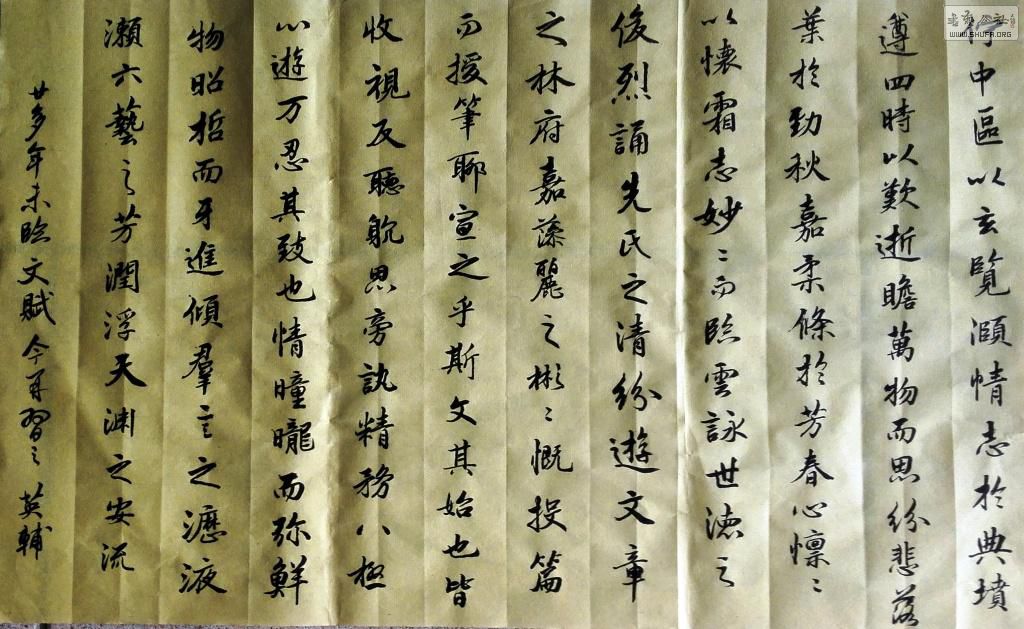 佇中區以玄覽頤情志於典墳
遵四時以歎逝瞻萬物而思紛悲落
葉於勁秋嘉柔條於芳春心懍〻
以懷霜志妙〻而臨雲詠世德之
俊烈誦先氏之清紛遊文章
之林府嘉藻麗之彬〻慨投篇
而援筆聊宣之乎斯文其始也皆
收視反聽躭思旁訊精務八極
心遊万忍其致也情曈曨而弥鮮
物昭晢而牙進傾羣言之瀝液
瀬六藝之芳潤浮天淵之安流
廿多年未臨文賦今再習之 英輔
WWW.SHUFA.ORG